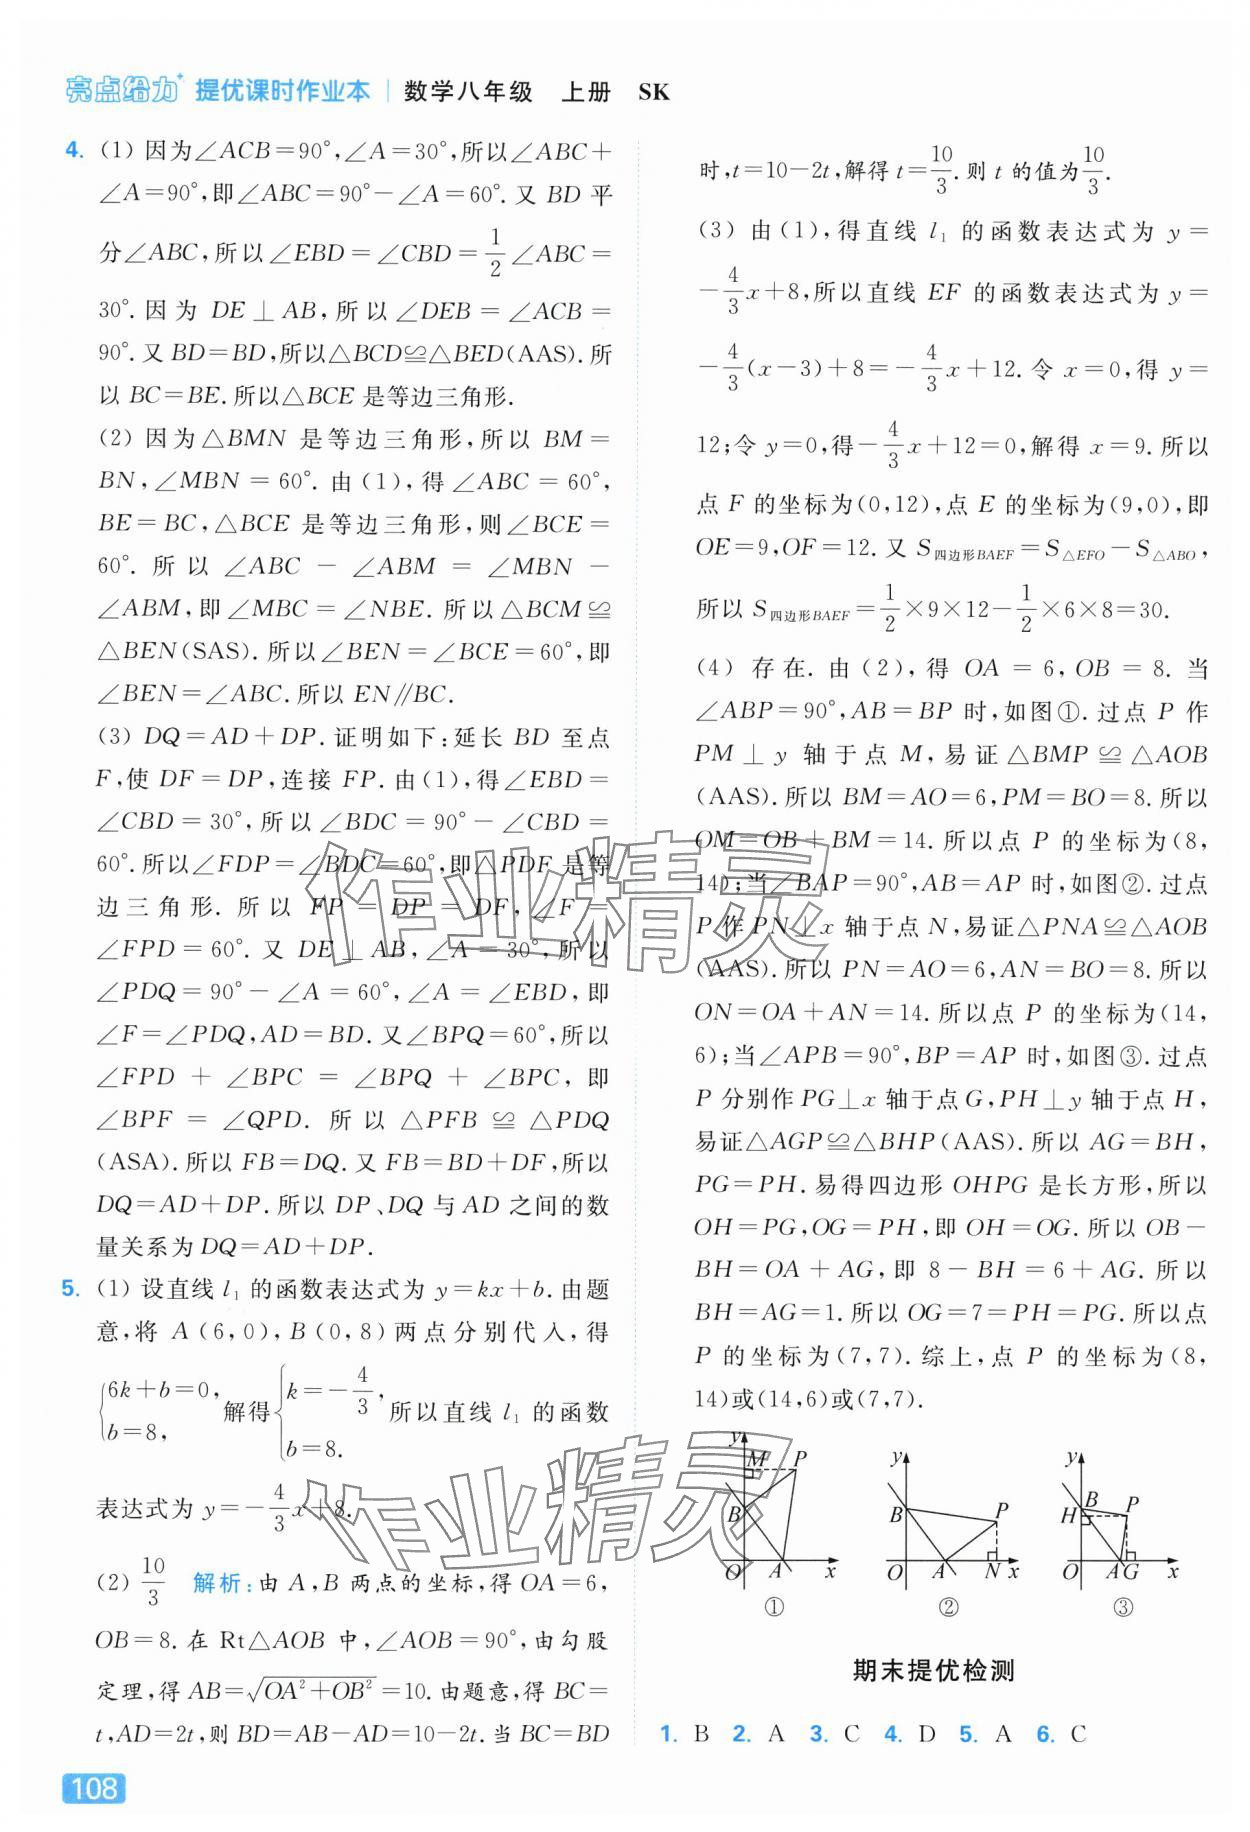 亮点给力 提优课时作业本 | 数学八年级 上册 SK
4. (1) 因为∠ACB=90°,∠A=30°,所以∠ABC+
∠A=90°,即∠ABC=90°-∠A=60°.又 BD 平
分∠ABC,所以∠EBD=∠CBD=1/2∠ABC=
30°.因为 DE⊥AB,所以∠DEB=∠ACB=
90°.又 BD=BD,所以△BCD≌△BED(AAS).所
以 BC=BE.所以△BCE 是等边三角形.
(2) 因为△BMN 是等边三角形,所以 BM=
BN,∠MBN=60°.由(1),得∠ABC=60°,
BE=BC,△BCE 是等边三角形,则∠BCE=
60°.所以∠ABC-∠ABM=∠MBN-
∠ABM,即∠MBC=∠NBE.所以△BCM≌
△BEN(SAS).所以∠BEN=∠BCE=60°,即
∠BEN=∠ABC.所以 EN∥BC.
(3) DQ=AD+DP.证明如下:延长 BD 至点
F,使 DF=DP,连接 FP.由(1),得∠EBD=
∠CBD=30°,所以∠BDC=90°-∠CBD=
60°.所以∠FDP=∠BDC=60°,即△PDF 是等
边三角形.所以 FP=DP=DF,∠F=
∠FPD=60°.又 DE⊥AB,∠A=30°,所以
∠PDQ=90°-∠A=60°,∠A=∠EBD,即
∠F=∠PDQ,AD=BD.又∠BPQ=60°,所以
∠FPD+∠BPC=∠BPQ+∠BPC,即
∠BPF=∠QPD.所以△PFB≌△PDQ
(ASA).所以 FB=DQ.又 FB=BD+DF,所以
DQ=AD+DP.所以 DP、DQ 与 AD 之间的数
量关系为 DQ=AD+DP.
5. (1) 设直线 l₁ 的函数表达式为 y=kx+b.由题
意,将 A(6,0),B(0,8)两点分别代入,得
{6k+b=0, b=8, 解得{k=-4/3, b=8. 所以直线 l₁ 的函数
表达式为 y=-4/3x+8.
(2) 10/3 解析:由 A,B 两点的坐标,得 OA=6,
OB=8.在 Rt△AOB 中,∠AOB=90°,由勾股
定理,得 AB=√(OA²+OB²)=10.由题意,得 BC=
t,AD=2t,则 BD=AB-AD=10-2t.当 BC=BD
108
时,t=10-2t,解得 t=10/3.则 t 的值为10/3.
(3) 由(1),得直线 l₁ 的函数表达式为 y=
-4/3x+8,所以直线 EF 的函数表达式为 y=
-4/3(x-3)+8=-4/3x+12.令 x=0,得 y=
12;令 y=0,得-4/3x+12=0,解得 x=9.所以
点 F 的坐标为(0,12),点 E 的坐标为(9,0),即
OE=9,OF=12.又 S四边形BAEF=S△EFO-S△ABO,
所以 S四边形BAEF=1/2×9×12-1/2×6×8=30.
(4) 存在.由(2),得 OA=6,OB=8.当
∠ABP=90°,AB=BP 时,如图①.过点 P 作
PM⊥y 轴于点 M,易证△BMP≌△AOB
(AAS).所以 BM=AO=6,PM=BO=8.所以
OM=OB+BM=14.所以点 P 的坐标为(8,
14);当∠BAP=90°,AB=AP 时,如图②.过点
P 作 PN⊥x 轴于点 N,易证△PNA≌△AOB
(AAS).所以 PN=AO=6,AN=BO=8.所以
ON=OA+AN=14.所以点 P 的坐标为(14,
6);当∠APB=90°,BP=AP 时,如图③.过点
P 分别作 PG⊥x 轴于点 G,PH⊥y 轴于点 H,
易证△AGP≌△BHP(AAS).所以 AG=BH,
PG=PH.易得四边形 OHPG 是长方形,所以
OH=PG,OG=PH,即 OH=OG.所以 OB-
BH=OA+AG,即 8-BH=6+AG.所以
BH=AG=1.所以 OG=7=PH=PG.所以点
P 的坐标为(7,7).综上,点 P 的坐标为(8,
14)或(14,6)或(7,7).
y M P B O A x ①
y B P O A N x ②
y B H P O A G x ③
期末提优检测
1. B 2. A 3. C 4. D 5. A 6. C
作业精灵
作业精灵